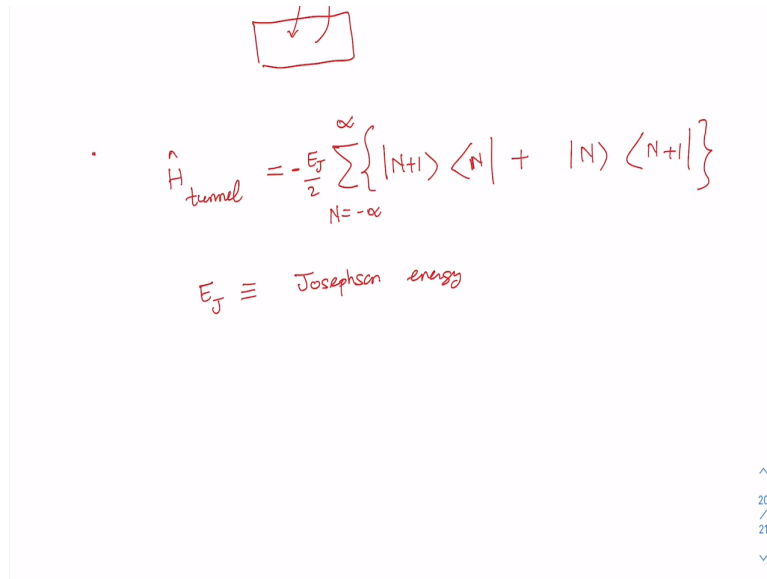 Ĥ_tunnel = - E_J/2 ∑_{N=-∝}^{∝} { |N+1⟩ ⟨N| + |N⟩ ⟨N+1| }
E_J ≡ Josephson energy
20
/
21